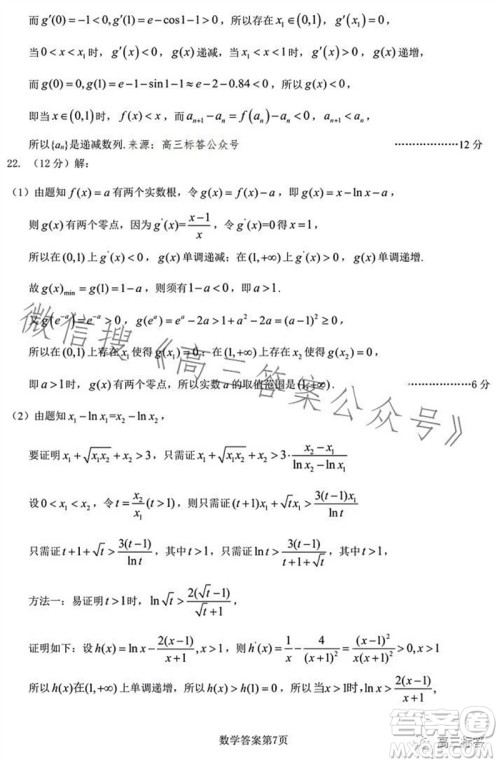 而g'(0)=-1<0,g'(1)=e-cos1-1>0，所以存在x₁∈(0,1)，使得g'(x₁)=0，
当0<x<x₁时，g'(x)<0，g(x)递减，当x₁<x<1时，g'(x)>0，g(x)递增，
而g(0)=0,g(1)=e-1-sin1-1≈e-2-0.84<0，所以g(x)<0，
即当x∈(0,1)时，f(x)<x，而aₙ₊₁-aₙ=f(aₙ)-aₙ<0，
所以{aₙ}是递减数列.来源：高三标答公众号 ………………12分
22. （12分）解：
（1）由题知f(x)=a有两个实数根，令g(x)=f(x)-a，即g(x)=x-ln x-a，
则g(x)有两个零点，因为g'(x)=(x-1)/x，令g'(x)=0得x=1，
所以在(0,1)上g'(x)<0，g(x)单调递减；在(1,+∞)上g'(x)>0，g(x)单调递增.
故g(x)min=g(1)=1-a，则须有1-a<0，即a>1.
又g(e⁻ᵃ)=e⁻ᵃ>0，g(eᵃ)=eᵃ-2a>1+a²-2a>0，
所以在(0,1)上存在x₁使得g(x₁)=0；在(1,+∞)上存在x₂使得g(x₂)=0.
即a>1时，g(x)有两个零点，所以实数a的取值范围是(1,+∞). ………………6分
（2）由题知x₁-ln x₁=x₂-ln x₂，
要证明x₁+√(x₁x₂)+x₂>3，只需证x₁+√(x₁x₂)+x₂>3·(x₂-x₁)/(ln x₂-ln x₁)，
设0<x₁<x₂，令t=x₂/x₁(t>1)，则只需证(t+1)x₁+√t x₁>3(t-1)x₁/ln t
只需证t+1+√t>3(t-1)/ln t，只需证t>1时，ln t>3(t-1)/(t+1+√t)
方法一：易证明t>1时，ln√t>2(√t-1)/(√t+1)，
证明如下：设h(x)=ln x-2(x-1)/(x+1),x>1，则h'(x)=1/x-4/(x+1)²=(x-1)²/(x(x+1)²)>0,x>1
所以h(x)在(1,+∞)上单调递增，所以当x>1时，h(x)>h(1)=0，所以ln x>2(x-1)/(x+1)
数学答案第7页
微信搜《高三答案公众号》
高三标答
答案圈
MXQE.COM